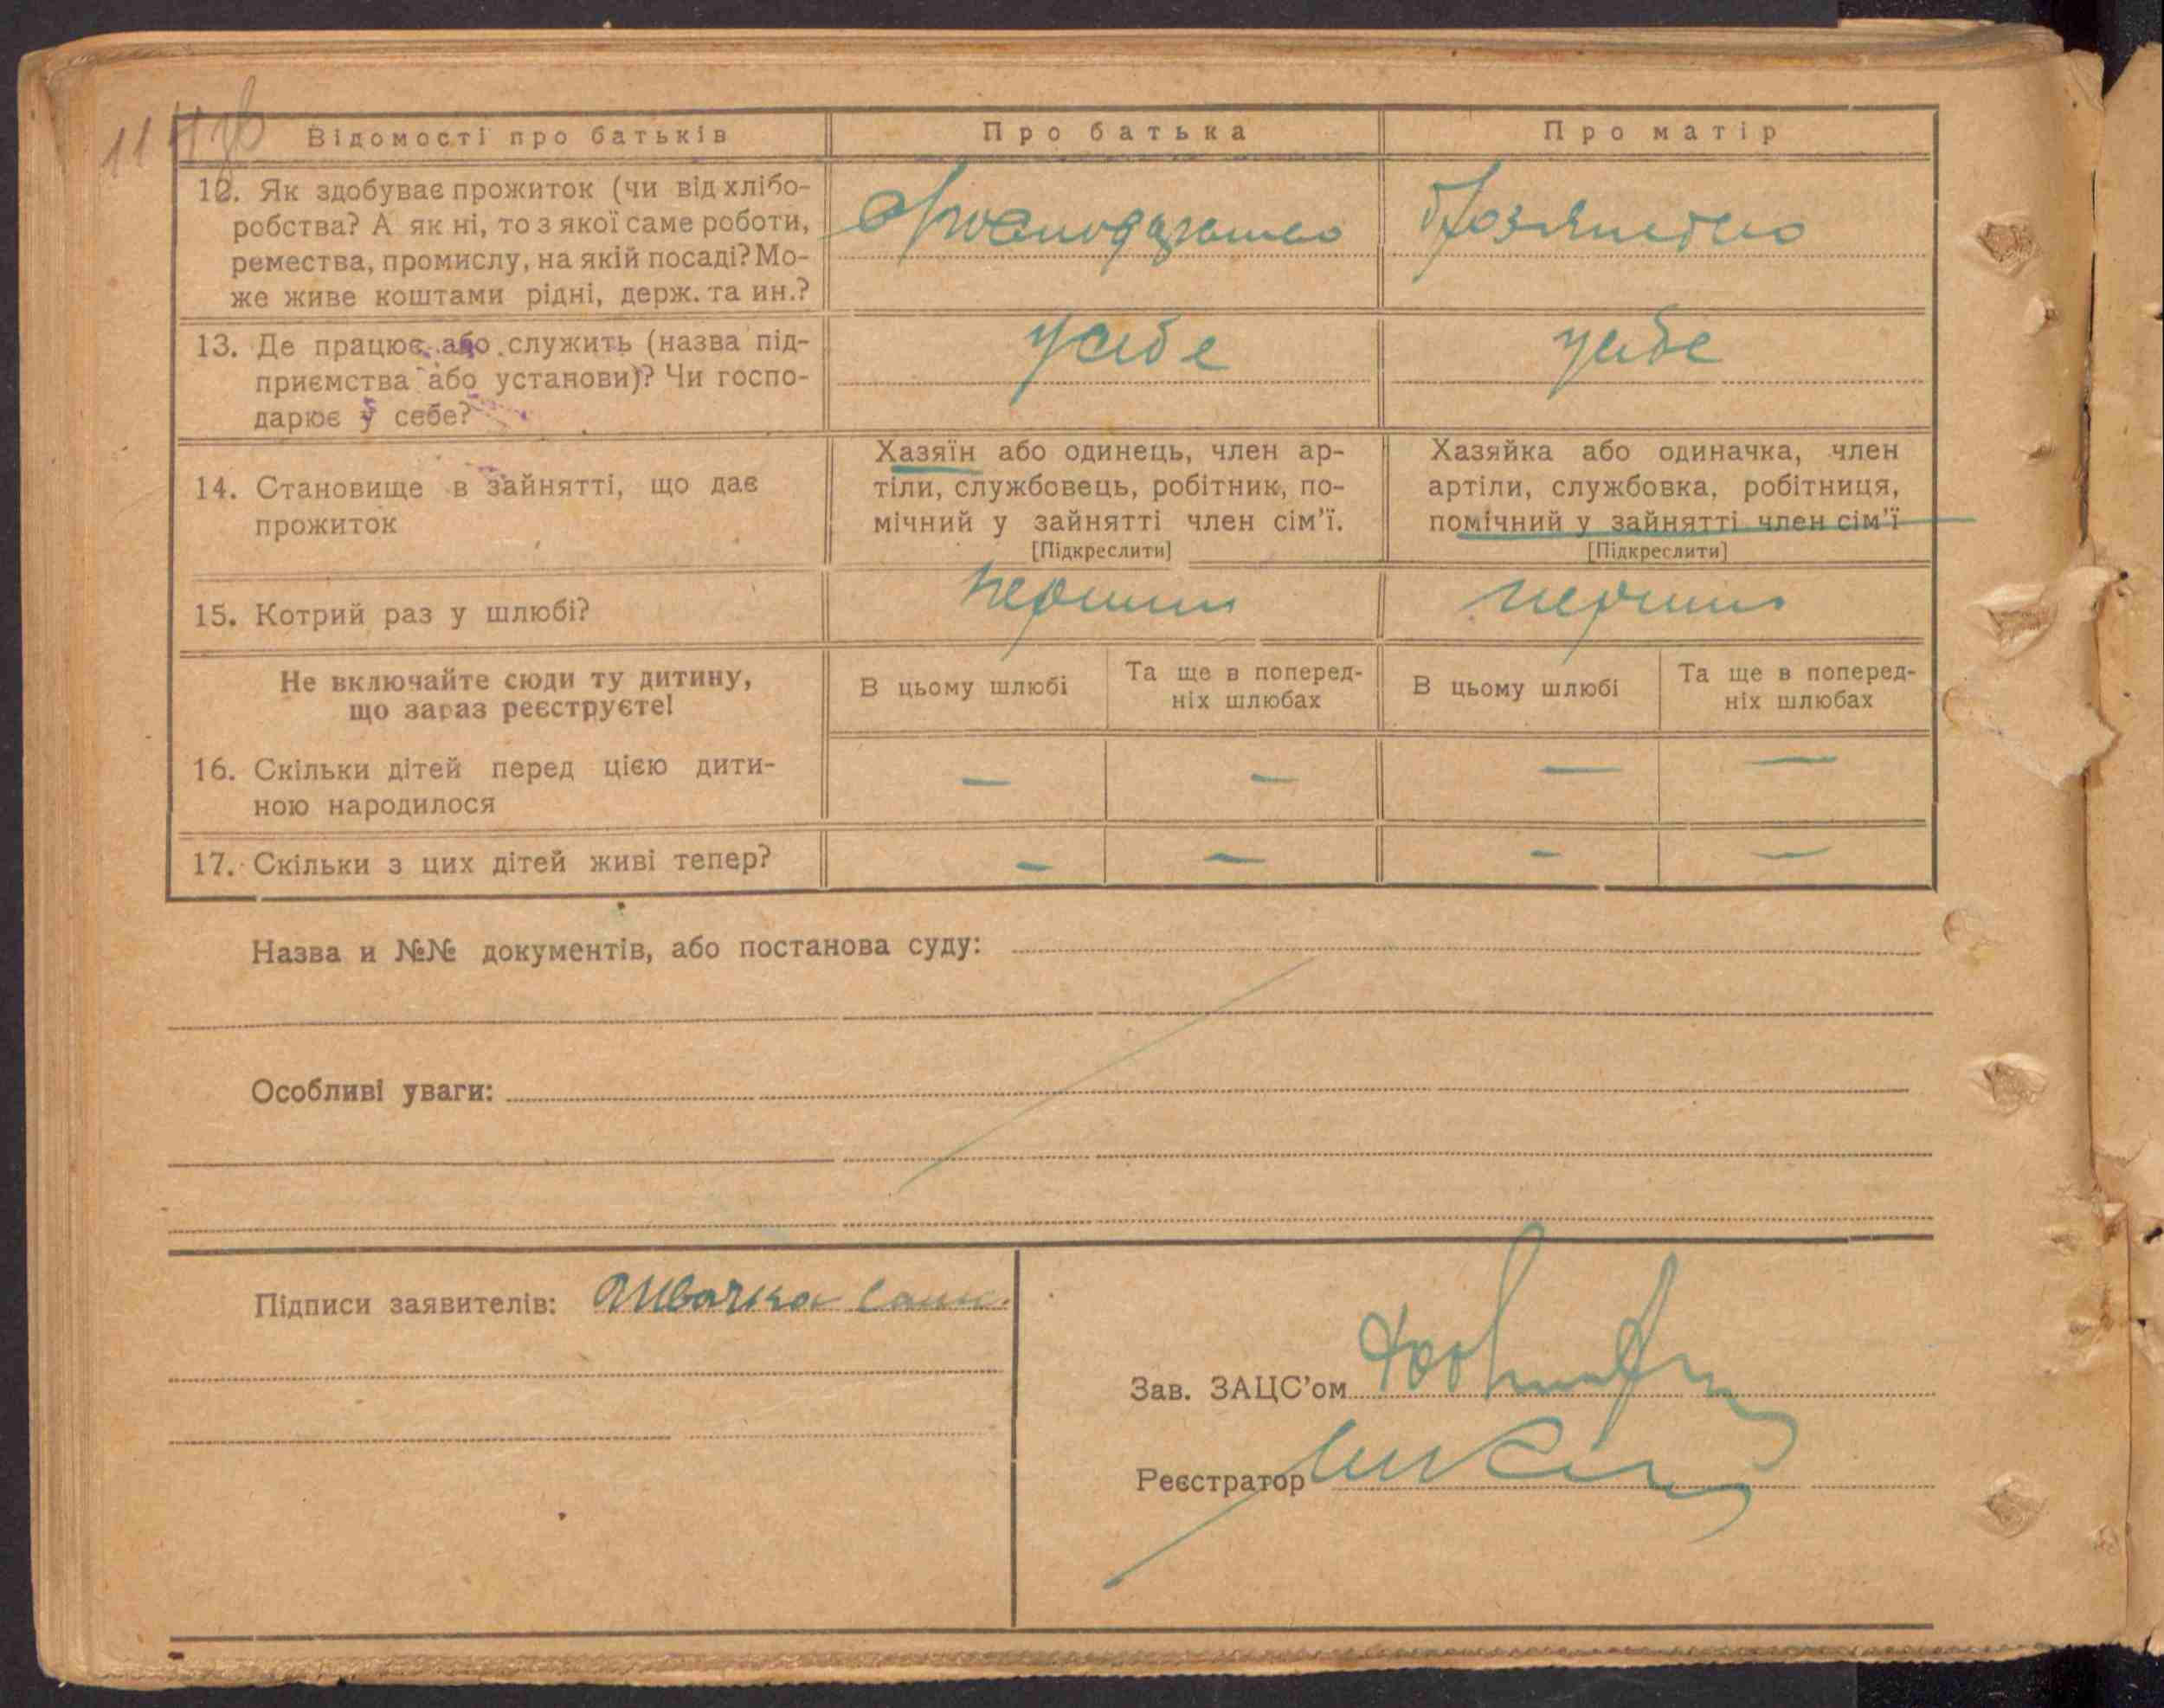 Відомості про батьків
Про батька
Про матір
12. Як здобуває прожиток (чи від хлібо-
робства? А як ні, то з якої саме роботи,
ремества, промислу, на якій посаді? Мо-
же живе коштами рідні, держ. та ин.?
13. Де працює або служить (назва під-
приємства або установи)? Чи госпо-
дарює у себе?
у себе
у себе
14. Становище в зайнятті, що дає
прожиток
Хазяїн або одинець, член ар-
тіли, службовець, робітник, по-
мічний у зайнятті член сім'ї.
[Підкреслити]
Хазяйка або одиначка, член
артіли, службовка, робітниця,
помічний у зайнятті член сім'ї
[Підкреслити]
15. Котрий раз у шлюбі?
перший
перший
Не включайте сюди ту дитину,
що зараз реєструєте!
В цьому шлюбі
Та ще в поперед-
ніх шлюбах
В цьому шлюбі
Та ще в поперед-
ніх шлюбах
16. Скільки дітей перед цією дити-
ною народилося
— — — —
17. Скільки з цих дітей живі тепер?
— — — —
Назва и №№ документів, або постанова суду:
Особливі уваги:
Підписи заявителів:
Зав. ЗАЦС'ом
Реєстратор